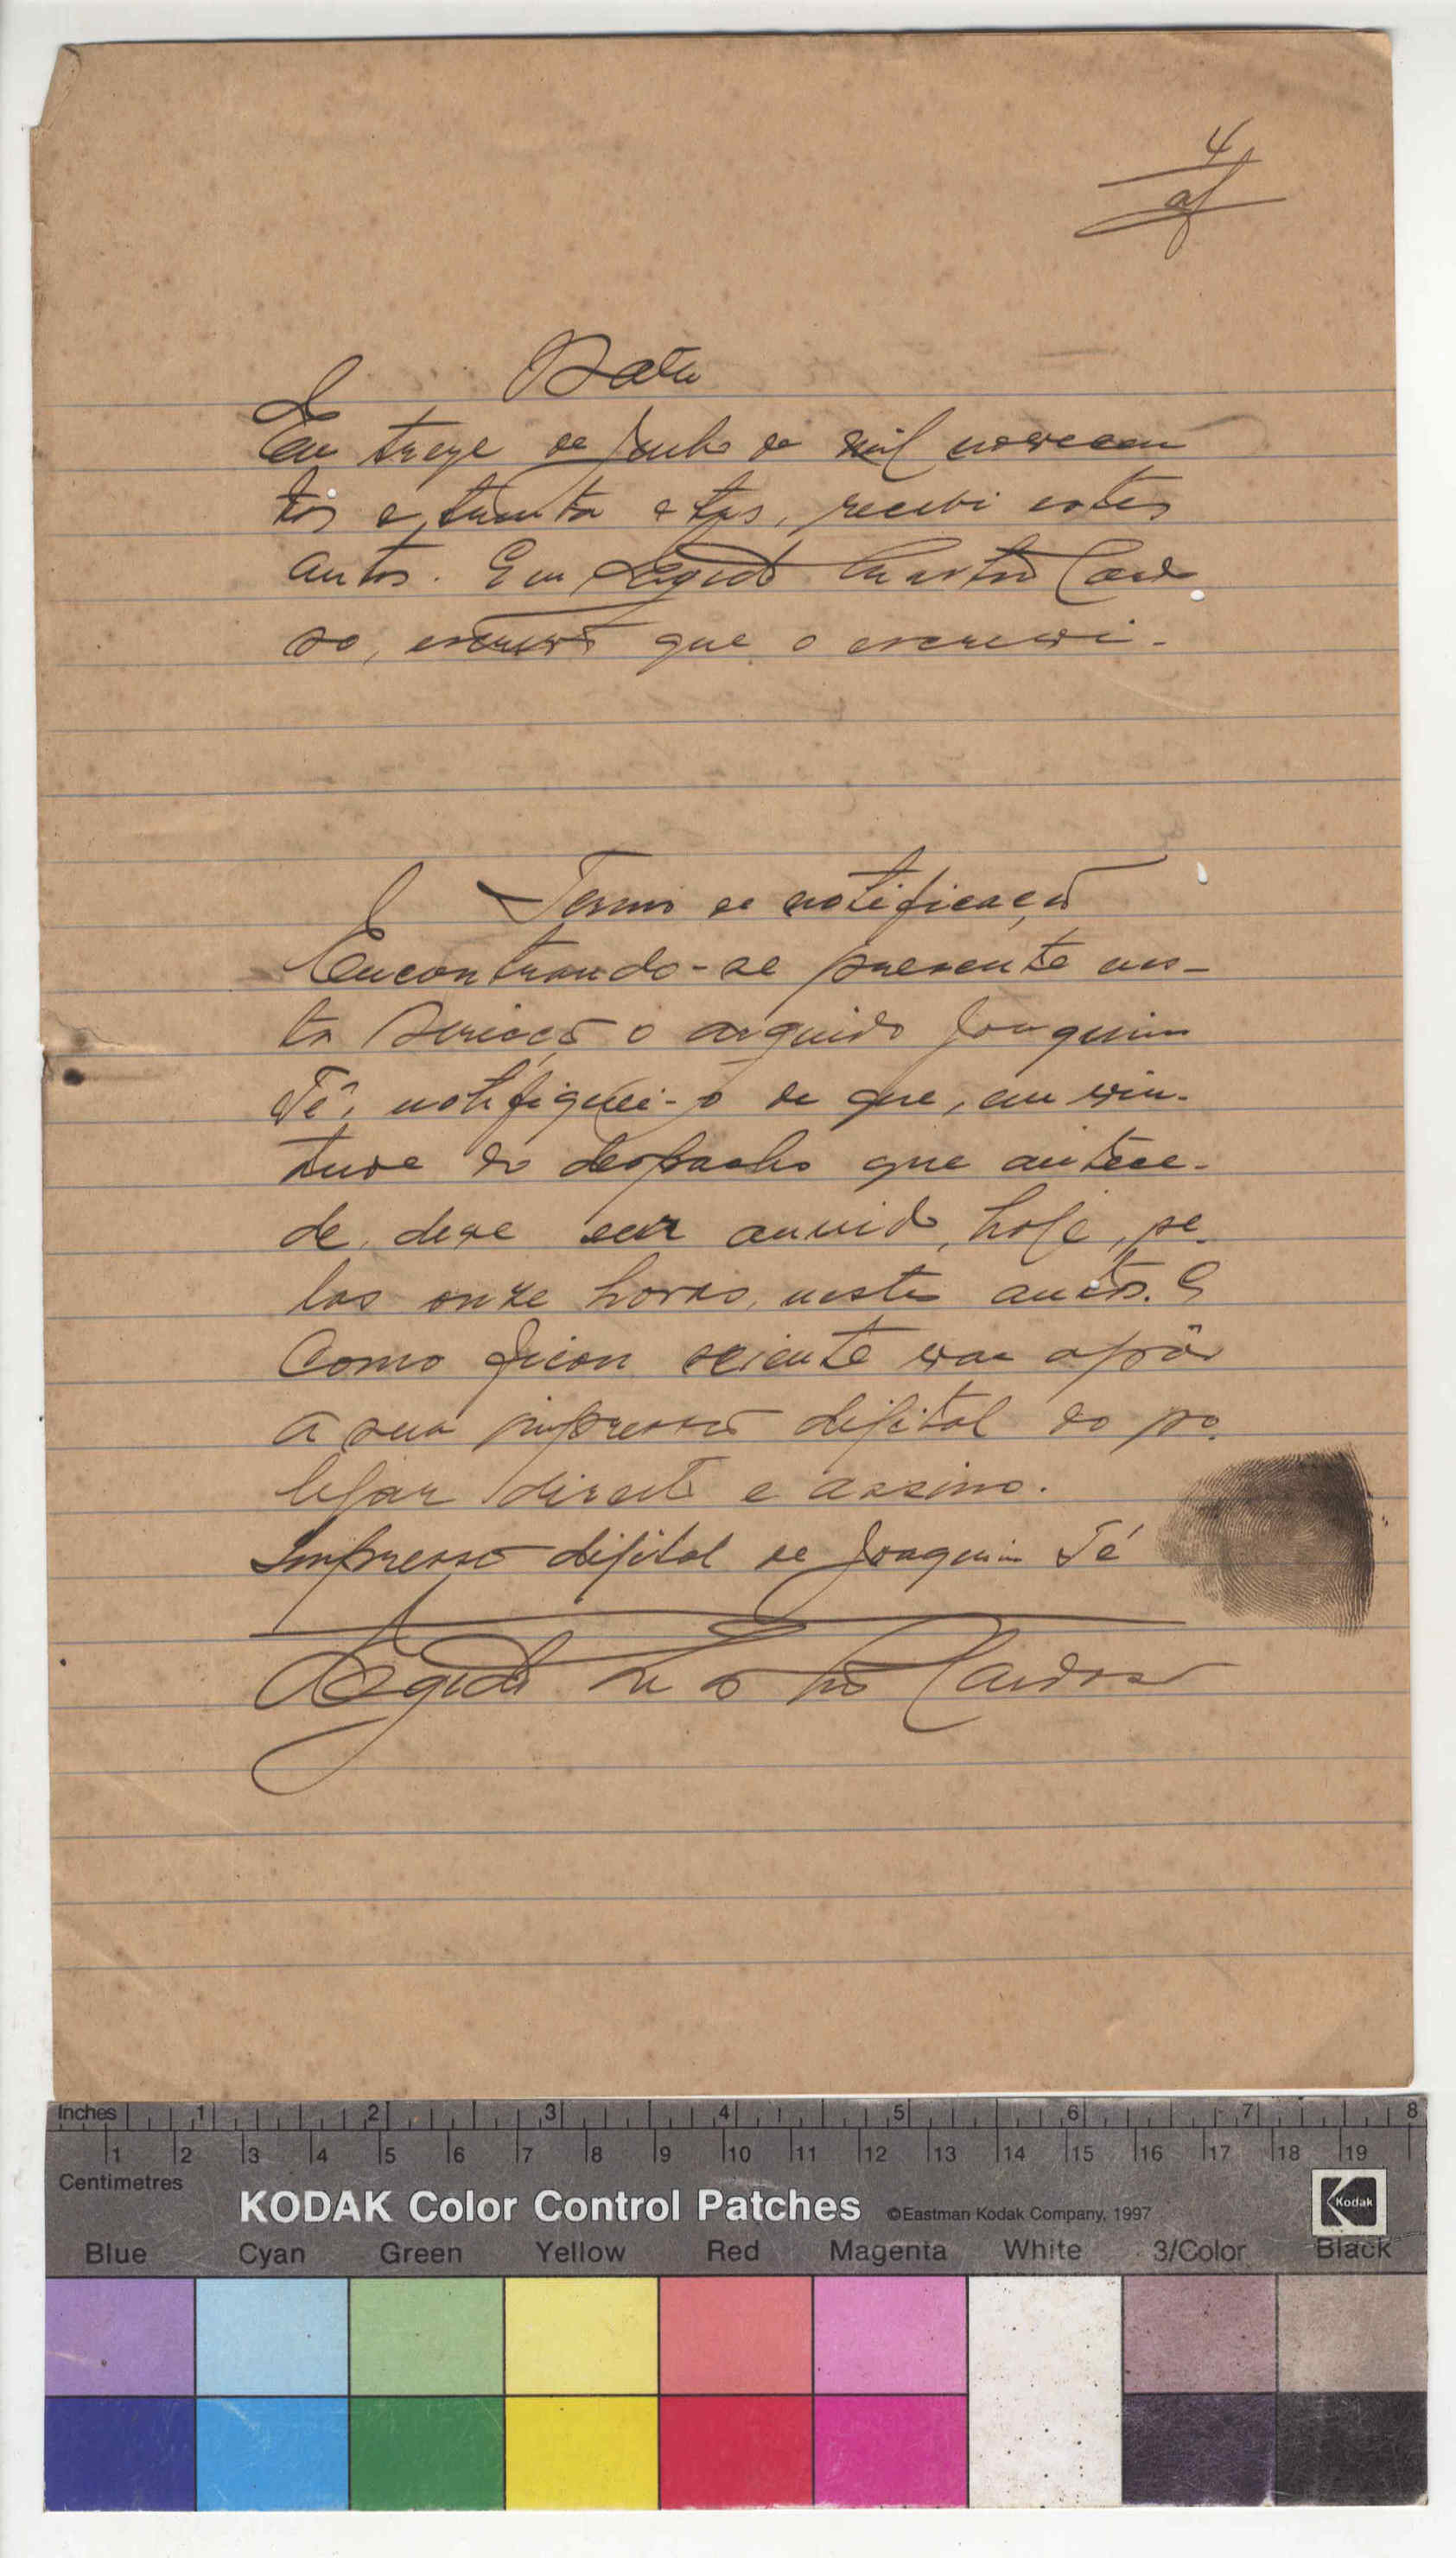 4
Data
Em treze de Junho de mil novecen
tos e trinta e tres, recebi estes
autos. Eu Egido Castro Cardo
so, escrivão que o escrevi.
Termo de notificação
Encontrando-se presente nes-
ta Secção o arguido Joaquim
Té, notifiquei-o de que, em vir-
tude do despacho que antece-
de, deve ser ouvido, hoje, pe-
las onze horas, nestes autos. E
como ficou sciente vae apôr
a sua impressão digital do po-
legar direito e assino.
Impressão digital de Joaquim Té
Egido Castro Cardoso
Inches 1 2 3 4 5 6 7 8
1 2 3 4 5 6 7 8 9 10 11 12 13 14 15 16 17 18 19
Centimetres
KODAK Color Control Patches ©Eastman Kodak Company, 1997 Kodak
Blue Cyan Green Yellow Red Magenta White 3/Color Black